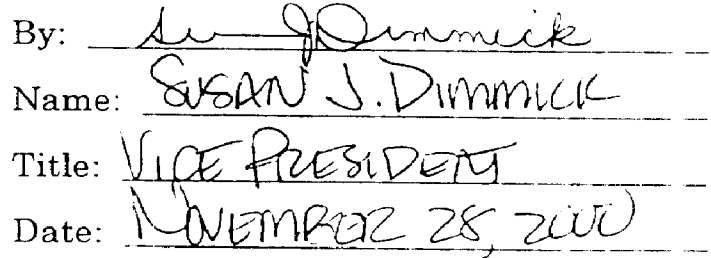 By: Su J Dimmick
Name: SUSAN J. DIMMICK
Title: VICE PRESIDENT
Date: NOVEMBER 28, 2000